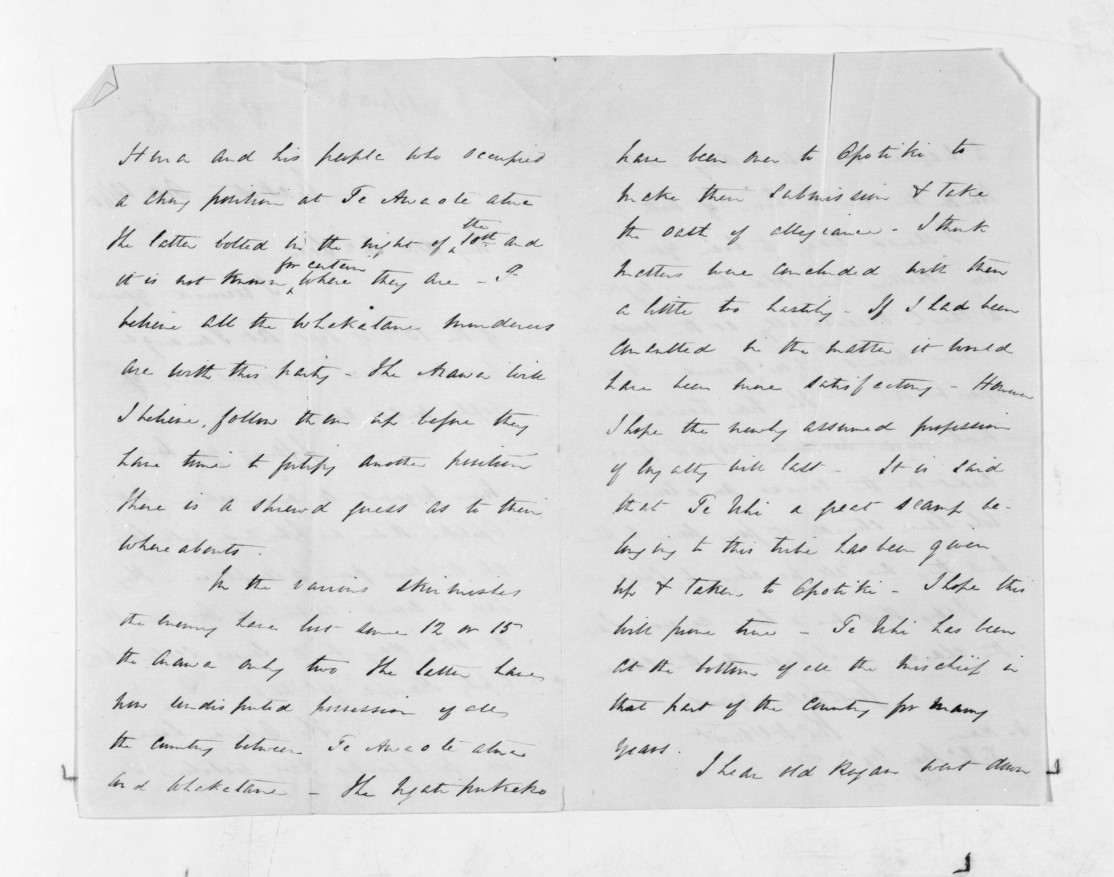 Hura and his people who occupied
a strong position at Te Awa o te atua
The latter bolted in the night of the 18th and
it is not known for certain where they are - I
believe all the Whakatane murderers
are with this party - The Arawa will
I believe, follow them up before they
have time to fortify another position
There is a shrewd guess as to their
whereabouts.
In the various skirmishes
the enemy have lost some 12 or 15
the Arawa only two The latter have
now undisputed possession of all
the country between Te Awa o te atua
and Whakatane - The Ngatipukeko
have been over to Opotiki to
make their submission & take
the oath of allegiance - I think
matters were concluded with them
a little too hastily - If I had been
consulted in the matter it would
have been more satisfactory - However
I hope the newly assumed profession
of loyalty will last - It is said
that Te Uhi a great scamp be-
longing to this tribe has been given
up & taken to Opotiki - I hope this
will prove true - Te Uhi has been
at the bottom of all the mischief in
that part of the country for many
years.
I hear old Rogan went down